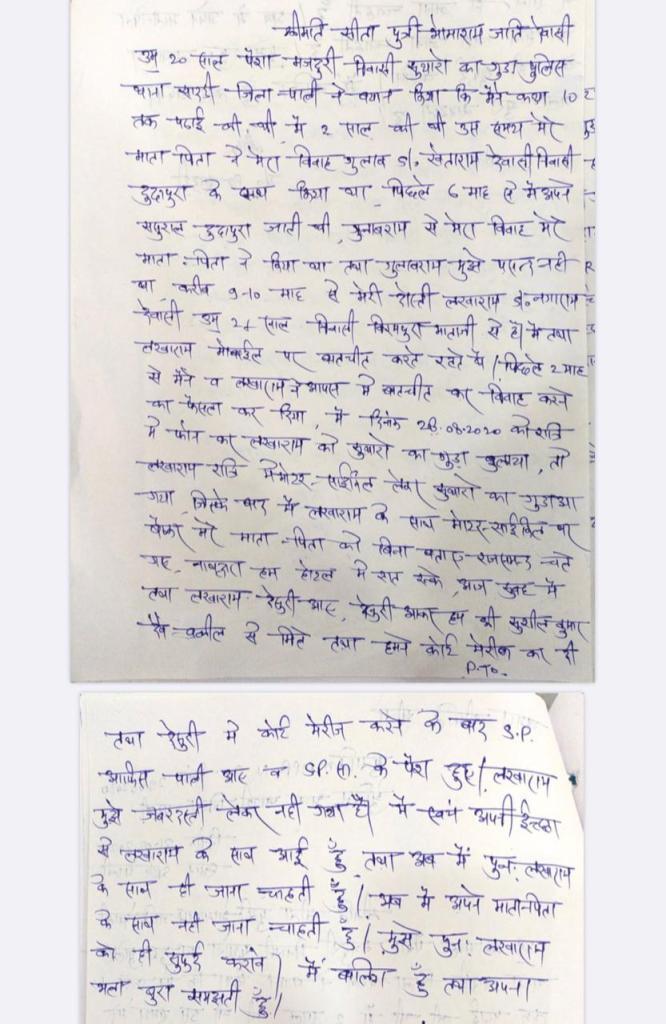 श्रीमति सीता पुत्री भोमाराम जाति देवासी
उम्र 20 साल पेशा मजदुरी निवासी सुथारो का गुडा पुलिस
थाना सादडी जिला पाली ने बयान किया कि मैने कक्षा 10
तक पढाई की थी, मैं 2 साल की थी उस समय मेरे
माता पिता ने मेरा विवाह गुलाब S/o खेताराम देवासी निवासी
दुदापुरा के साथ किया था, पिछले 6 माह से मैं अपने
ससुराल दुदापुरा जाती थी, गुलाबराम से मेरा विवाह मेरे
माता-पिता ने किया था तथा गुलाबराम मुझे पसन्द नही
था, करीब 9-10 माह से मेरी दोस्ती लखाराम S/o नगाराम
देवासी उम्र 24 साल निवासी विरमपुरा माताजी से है। मैं तथा
लखाराम मोबाईल पर बातचीत करते रहते थे। पिछले 2 माह
से मैने व लखाराम ने आपस में बातचीत कर विवाह करने
का फैसला कर दिया, मैं दिनांक 28.08.2020 को रात्रि
में फोन कर लखाराम को सुथारो का गुडा बुलाया, तो
लखाराम रात्रि में मोटर-साईकिल लेकर सुथारो का गुडा आ
गया, जिसके बाद में लखाराम के साथ मोटर-साईकिल पर
बैठकर मेरे माता-पिता को बिना बताए राजसमन्द चले
गए, हम होटल में रात रुके, आज सुबह मैं
तथा लखाराम देसुरी आए, देसुरी आकर हम श्री सुशील कुमार
वकील से मिले तथा हमने कोर्ट मेरीज कर दी
P.T.O.
तथा देसुरी में कोर्ट मेरीज करने के बाद S.P.
आफिस पाली आए व S.P. सा. के पेश हुए। लखाराम
मुझे जबरदस्ती लेकर नही गया है। मैं स्वयं अपनी ईच्छा
से लखाराम के साथ आई हूँ तथा अब मैं पुनः लखाराम
के साथ ही जाना चाहती हूँ। अब मैं अपने माता-पिता
के साथ नही जाना चाहती हूँ। मुझे पुनः लखाराम
को ही सुपुर्द करावे। मैं बालिग हूँ तथा अपना
भला बुरा समझती हूँ।